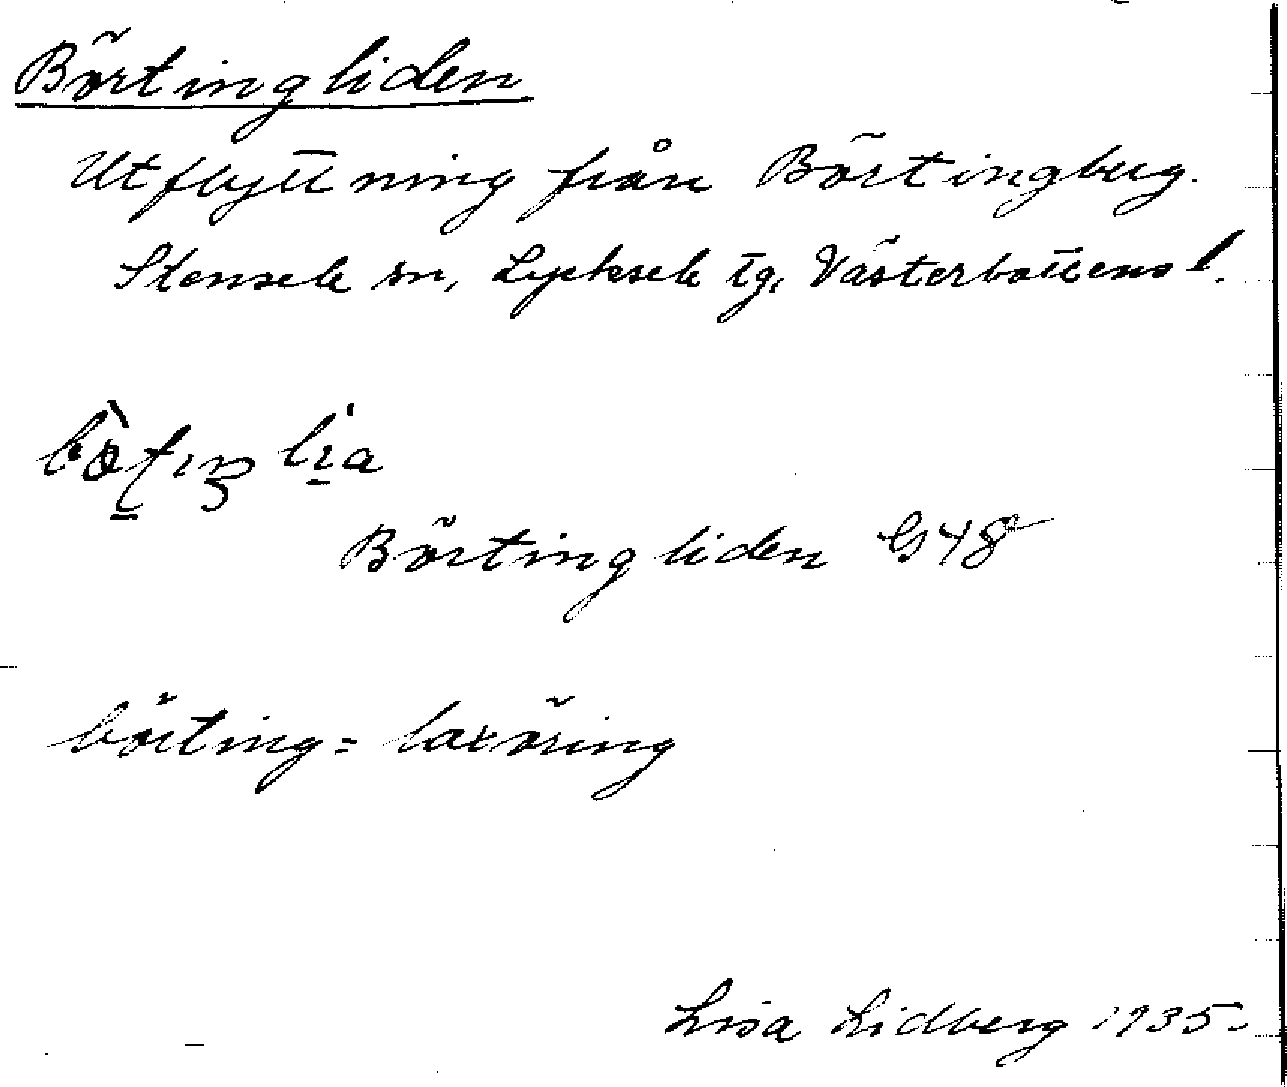 Börtingliden
Utflyttning från Börtingberg.
Stensele sn, Lycksele tg, Västerbottens l.
Börtingliden G48
börting = laxöring
Lisa Lidberg 1935.